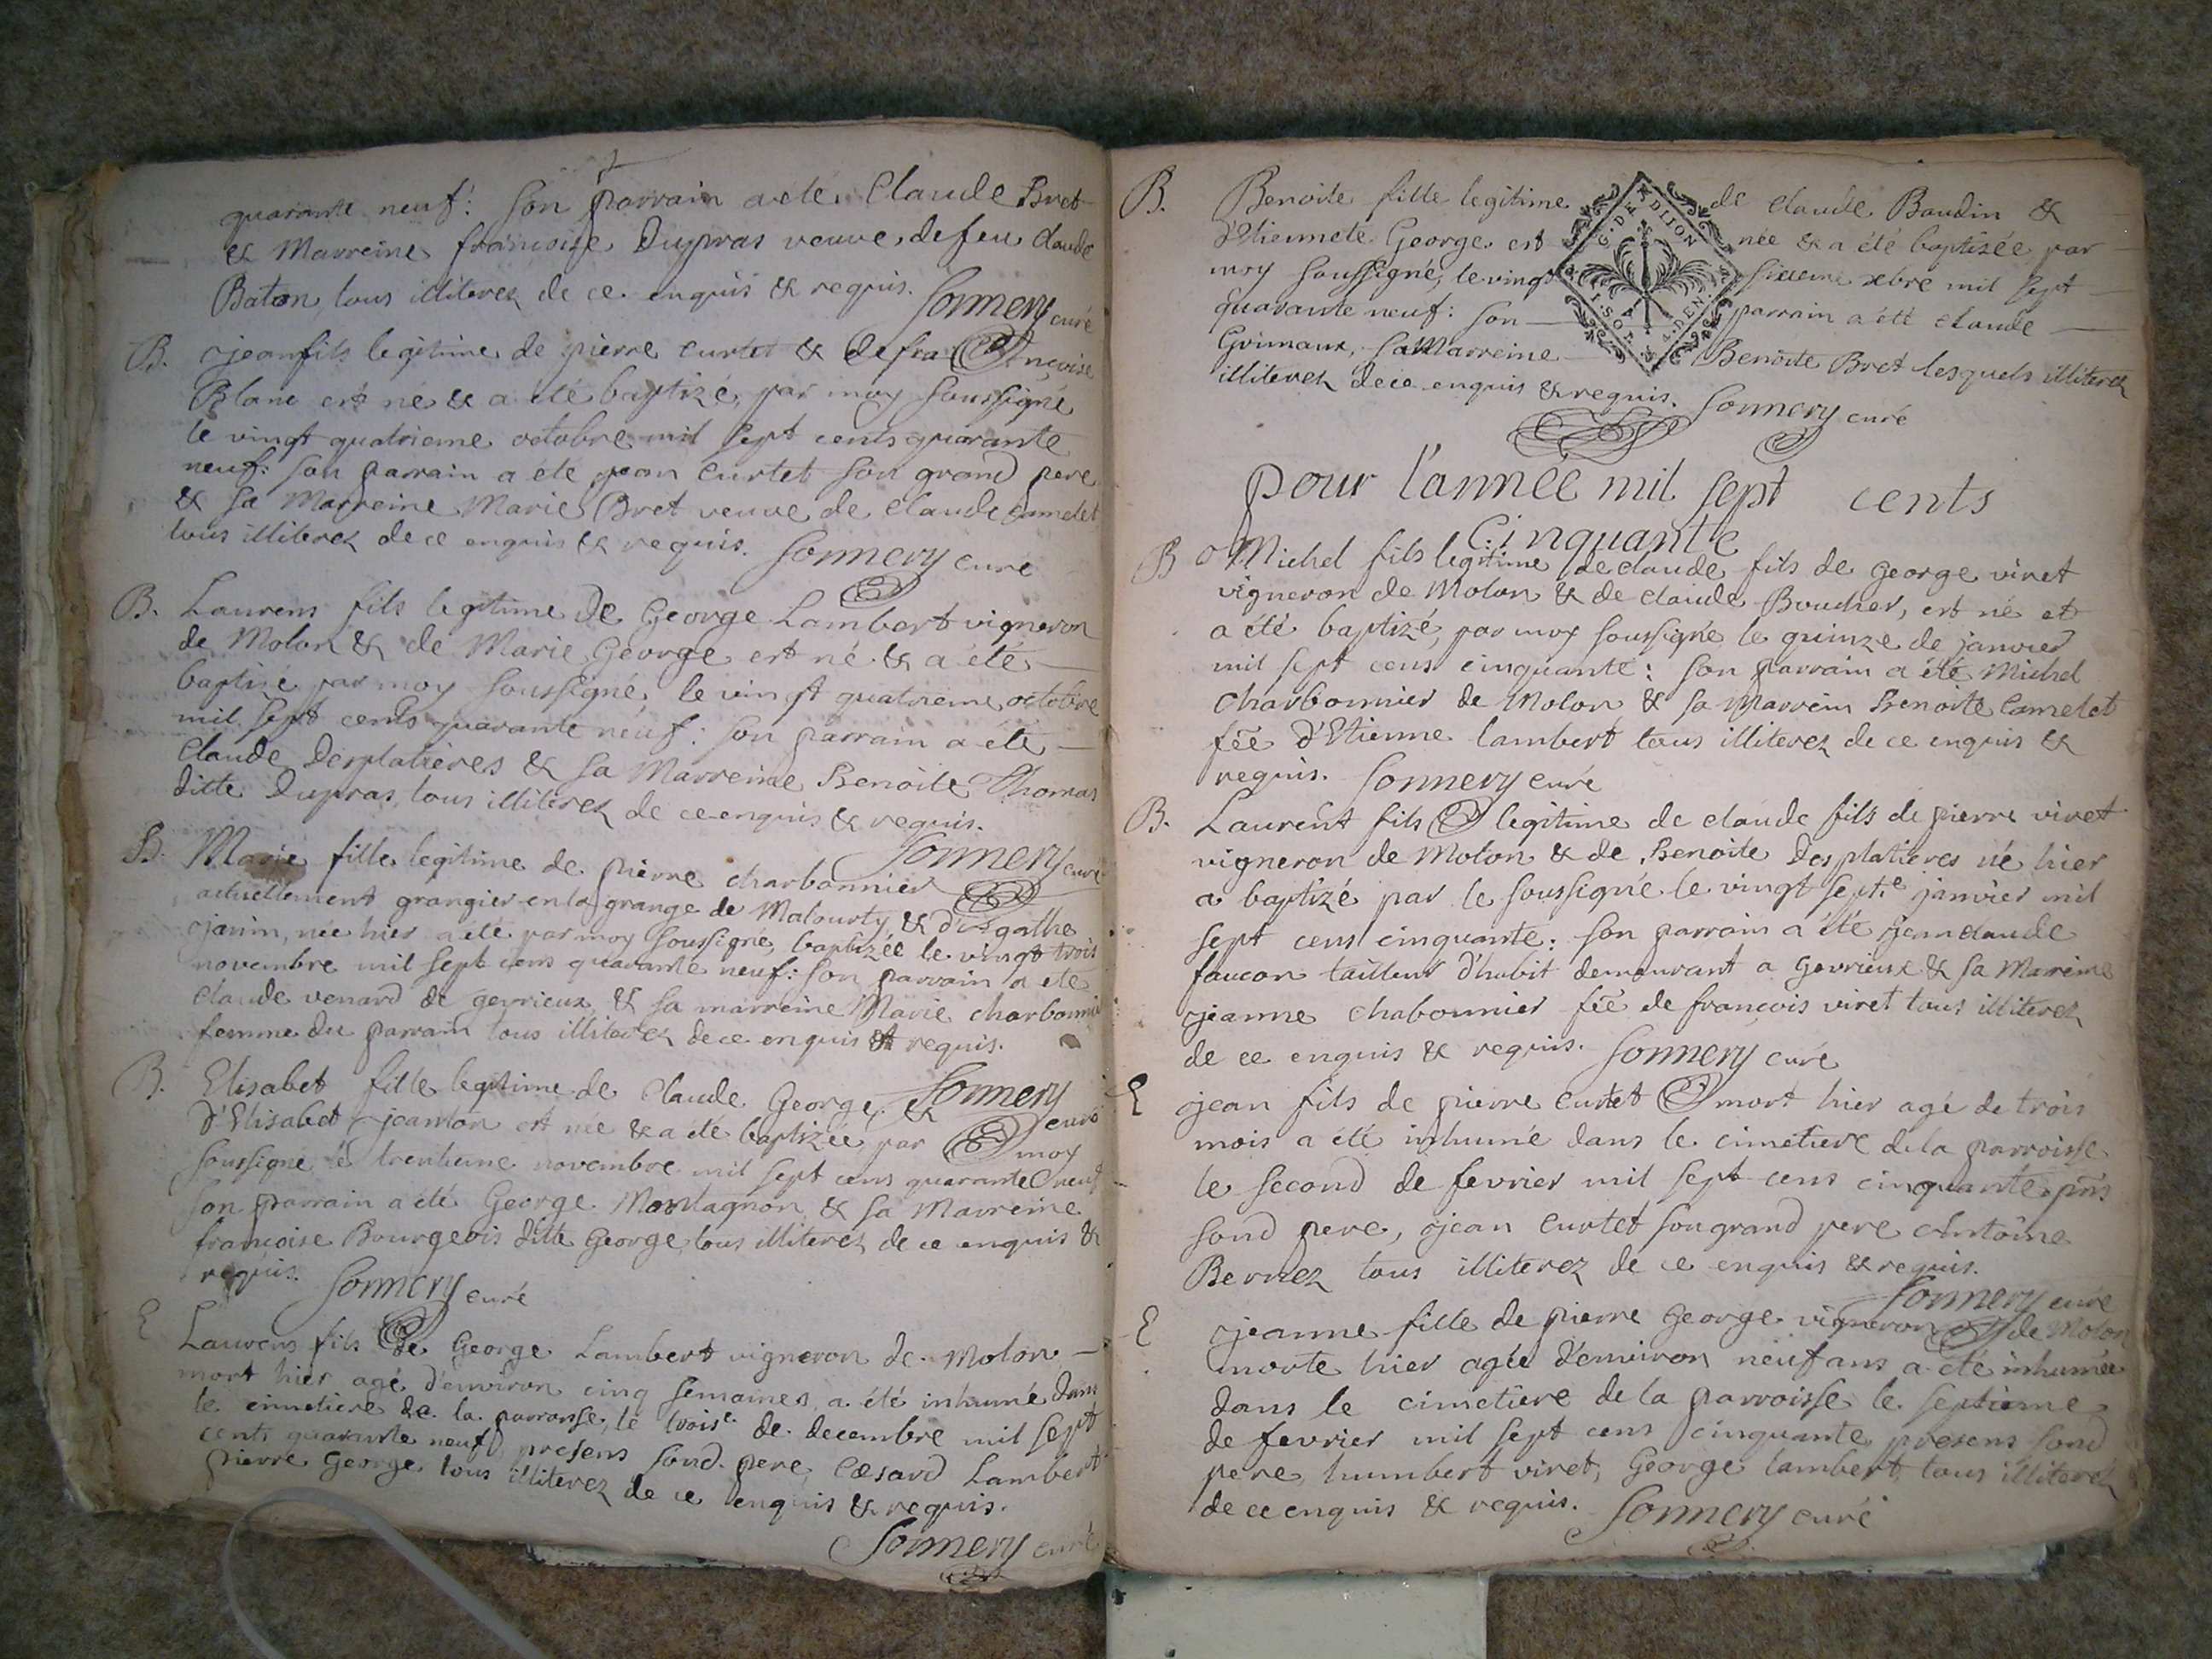 quarante neuf: son parrain a eté Claude Bret
& Marreine francoise Dupras veuve de feu Claude
Baton, tous illiterez de ce enquis & requis.
Sonnery curé
B. jean fils legitime de pierre curtet & de francoise
Blanc est né & a eté baptizé, par moy soussigné
le vingt quatrieme octobre mil sept cents quarante
neuf: son parrain a eté jean curtet son grand pere
& sa Marreine Marie Bret veuve de Claude Camelet
tous illiterez de ce enquis & requis. Sonnery curé
B. Laurens fils legitime de George Lambert vigneron
de Molon & de Marie George est né & a été
baptizé par moy soussigné, le vingt quatrieme octobre
mil sept cents quarante neuf: son parrain a eté
Claude Desplatieres & sa Marreine Benoite Thomas
ditte Dupras, tous illiterez de ce enquis & requis.
Sonnery curé
B. Marie fille legitime de pierre charbonnier
actuellement grangier en la grange de Malourty & d'Agathe
janin, née hier a été par moy soussigné, baptizée le vingt trois
novembre mil sept cens quarante neuf: son parrain a eté
claude venard de gevrieux & sa marreine Marie charbonnie
femme du parrain tous illiterez de ce enquis & requis.
Sonnery curé
B. Elisabet fille legitime de Claude George &
d'Elisabet jeanton est née & a été baptizée par moy
soussigné le trentieme novembre mil sept cens quarante neuf
son parrain a été George Montagnon & sa Marreine
françoise Bourgeois ditte George, tous illiterez de ce enquis &
requis. Sonnery curé
E Laurens fils de George Lambert vigneron de Molon
mort hier agé d'environ cinq semaines, a été inhumé dans
le cimetiere de la parroisse, le troise. de decembre mil sept
cents quarante neuf, presens sond. pere, Cæsard Lambert
pierre George tous illiterez de ce enquis & requis.
Sonnery curé
B. Benoite fille legitime de claude Baudin &
d'Etiennete George est née & a été baptizée par
moy soussigné, le vingt sixieme xbre mil sept
quarante neuf: son parrain a été claude
Grimaux, sa Marreine Benoite Bret lesquels illiterez
illiterez de ce enquis & requis. Sonnery curé
G. DE DIJON
pour l'année mil sept cents
Cinquante
B Michel fils legitime de claude fils de george viret
vigneron de Molon & de claude Boucher, est né et
a été baptizé, par moy soussigné le quinze de janvier
mil sept cens cinquante: son parrain a été Michel
charbonnier de Molon & sa Marrein Benoite Camelet
fee d'Etienne lambert tous illiterez de ce enquis &
requis. Sonnery curé
B. Laurent fils legitime de claude fils de pierre viret
vigneron de Molon & de Benoite Desplatieres né hier
a baptizé par le soussigné le vingt sept.e janvier mil
sept cens cinquante: son parrain a été jean claude
faucon tailleur d'habit demeurant a Gevrieux & sa Mareine
jeanne chabonnier fee de françois viret tous illiterez
de ce enquis & requis. Sonnery curé
E jean fils de pierre curtet mort hier agé de trois
mois a été inhumé dans le cimetiere de la parroisse
le second de fevrier mil sept cens cinquante pns
sond pere, jean curtet son grand pere Antoine
Bernez tous illiterez de ce enquis & requis.
Sonnery curé
E jeanne fille de pierre George vigneron de Molon
morte hier agée d'environ neuf ans a été inhumée
dans le cimetiere de la parroisse le septieme
de fevrier mil sept cens cinquante, presens sond
pere, humbert viret, George lambert, tous illiterez
de ce enquis & requis. Sonnery curé